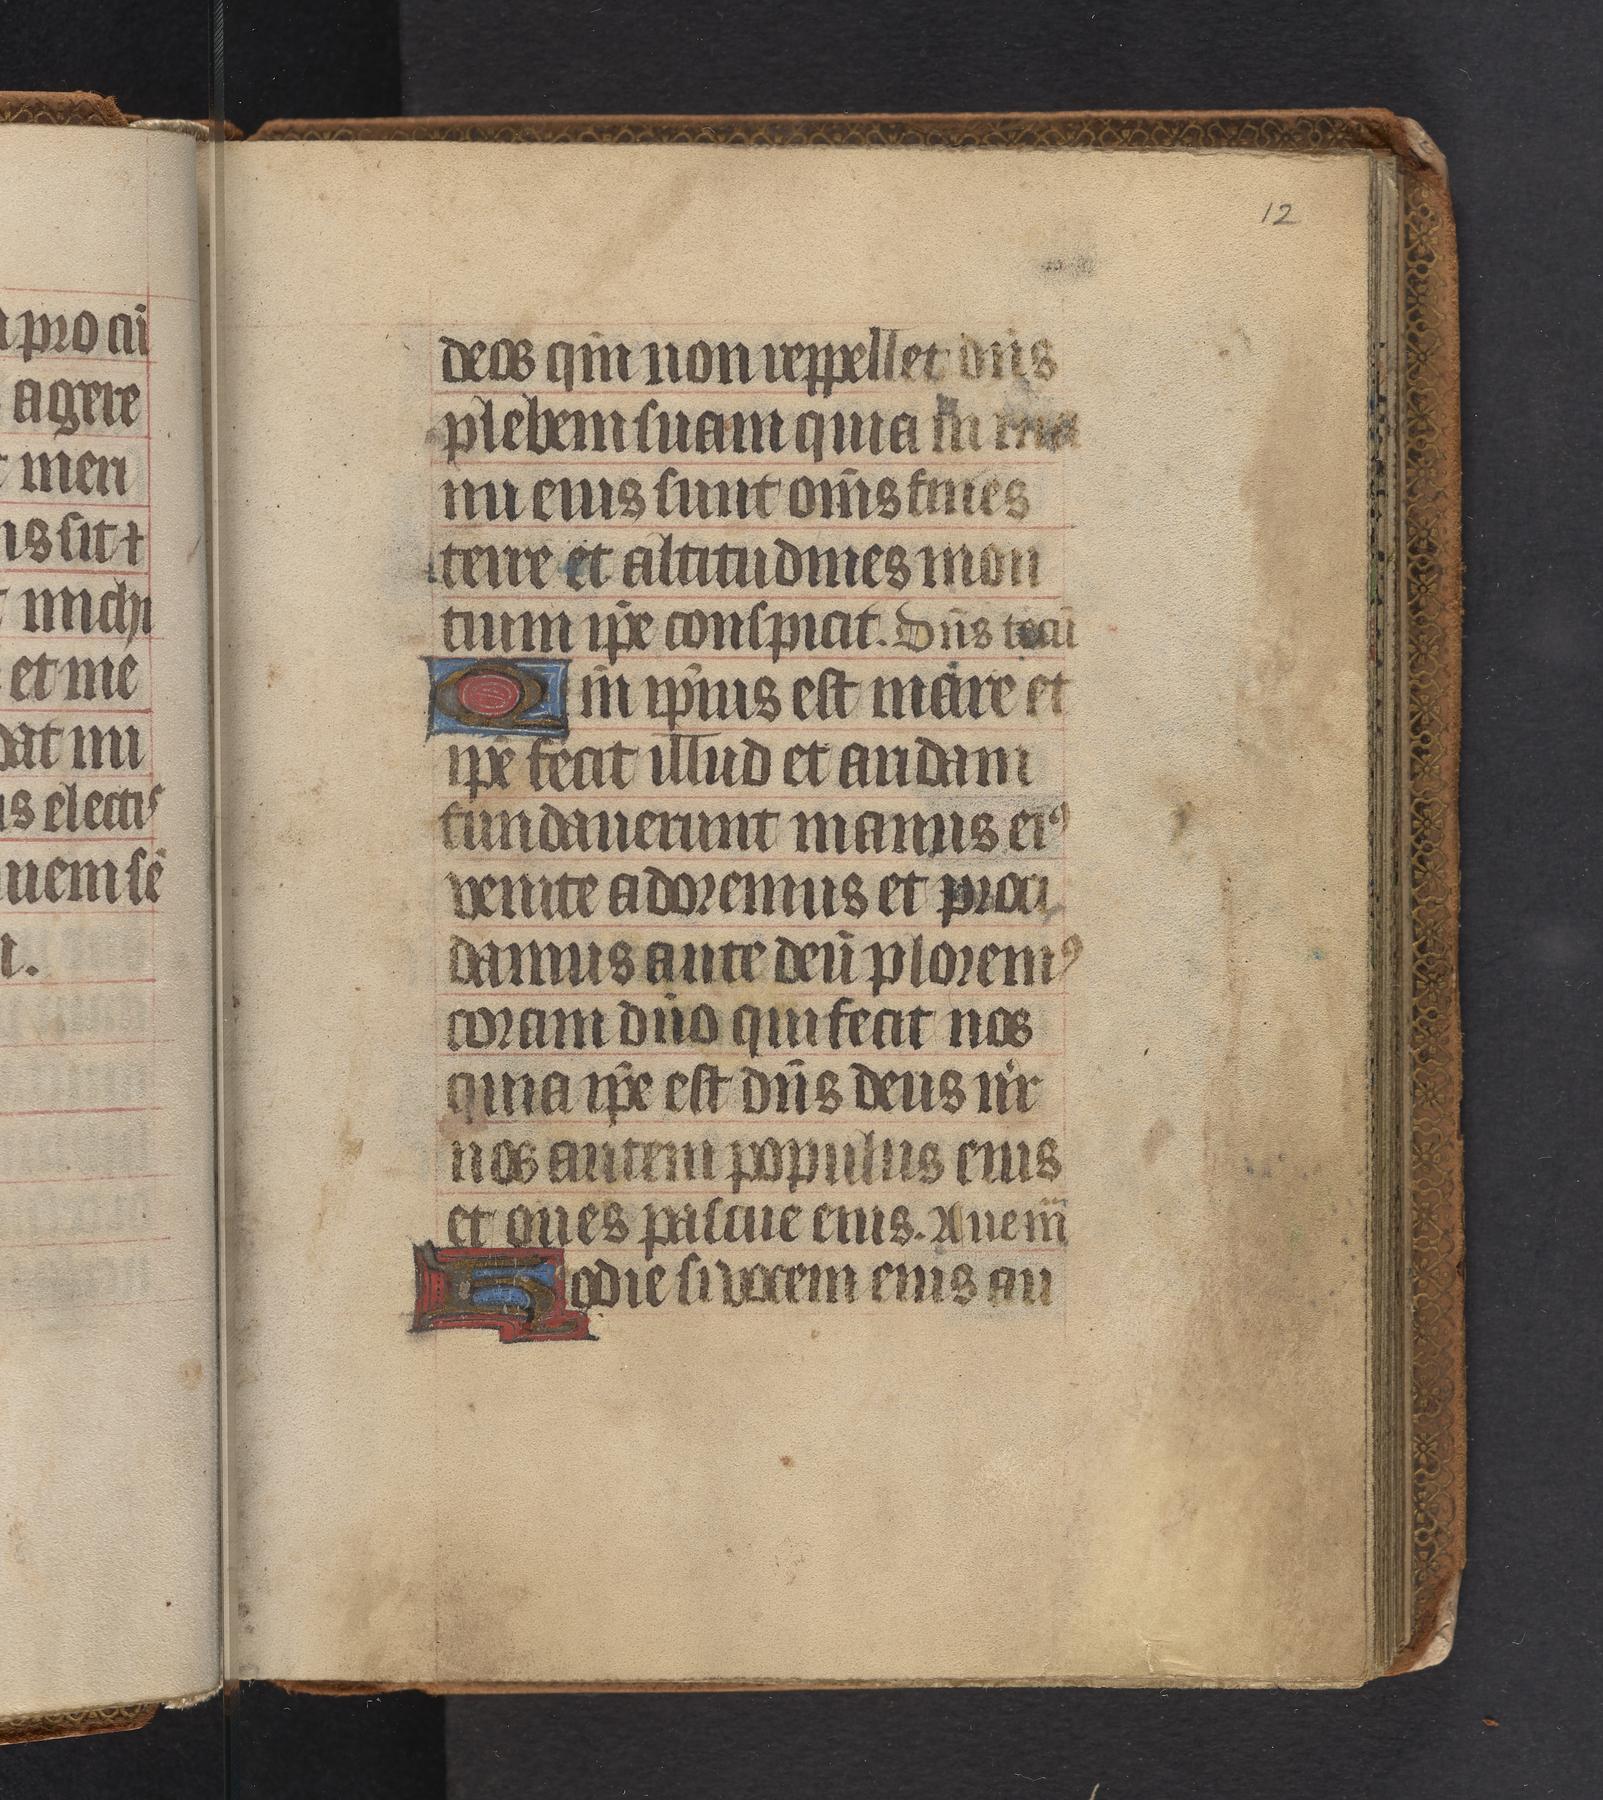 pro cū
agere
meri
sit ⁊
michi
et me
dat mi
electis
uem sē
12
deos qm̄ non reppellet dn̄s
plebem suam quia in ma
nu eius sunt om̄s fines
terre et altitudines mon
tium ip̄e conspicit. Dn̄s tecū
Qm̄ ip̄ius est mare et
ip̄e fecit illud et aridam
fundauerunt manus eiꝰ
venite adoremus et proci
damus ante deū ploremꝰ
coram dn̄o qui fecit nos
quia ip̄e est dn̄s deus nr̄
nos autem populus eius
et oues pascue eius. Aue m̄
Hodie si vocem eius au